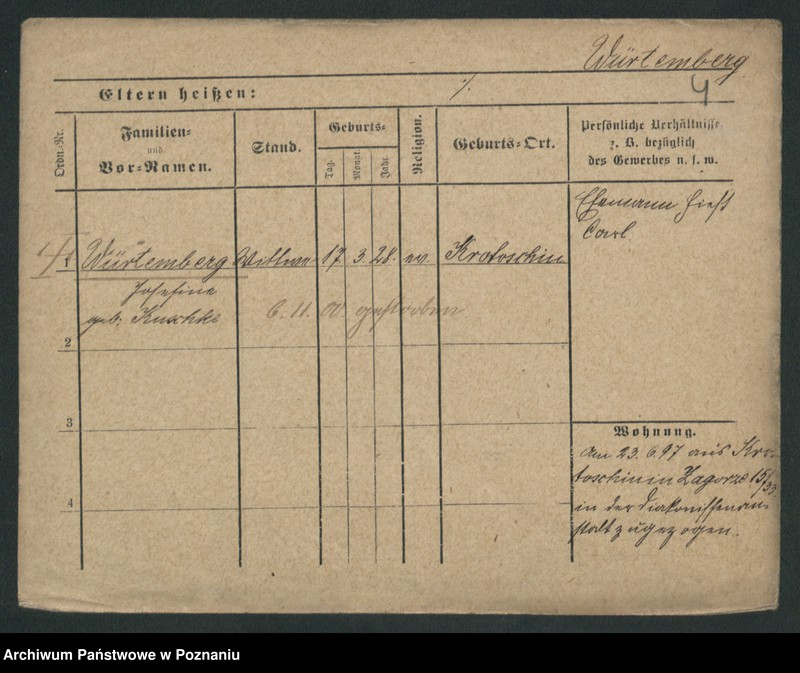 Würtemberg
4
Eltern heißen: ·/.
Ordn.-Nr.
Familien-
und
Vor-Namen.
Stand.
Geburts-
Tag.
Monat.
Jahr.
Religion.
Geburts-Ort.
Persönliche Verhältnisse
z. B. bezüglich
des Gewerbes u. s. w.
Ehemann hieß
Carl
1 Würtemberg Wittwe 17. 3. 28. ev. Krotoschin
Josefine
geb. Kuschke 6. 11. 00 gestorben
2
3
4
Wohnung.
Am 23.6.97 aus Kro-
toschin in Zagorze 15/
in der Diakonissenan-
stalt zugezogen.
Archiwum Państwowe w Poznaniu